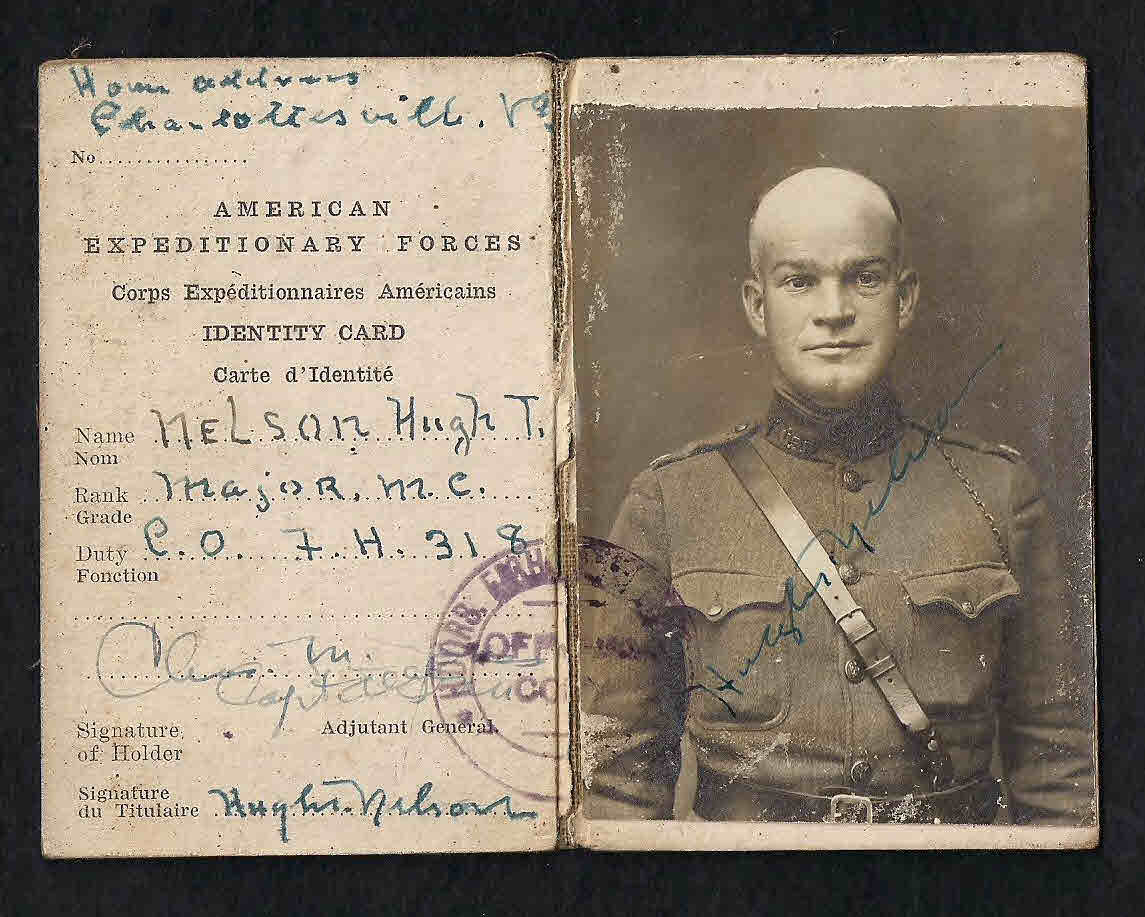 Home address
Charlottesville. Va
No................
AMERICAN
EXPEDITIONARY FORCES
Corps Expéditionnaires Américains
IDENTITY CARD
Carte d'Identité
Name NELSON Hugh T.
Nom
Rank MajoR. M.C.
Grade
Duty C.O. F.H. 318
Fonction
Chas. M.
Capt
Signature
of Holder
Adjutant General.
Signature
du Titulaire Hugh T. Nelson
OFFI
CO
Hugh T. Nelson